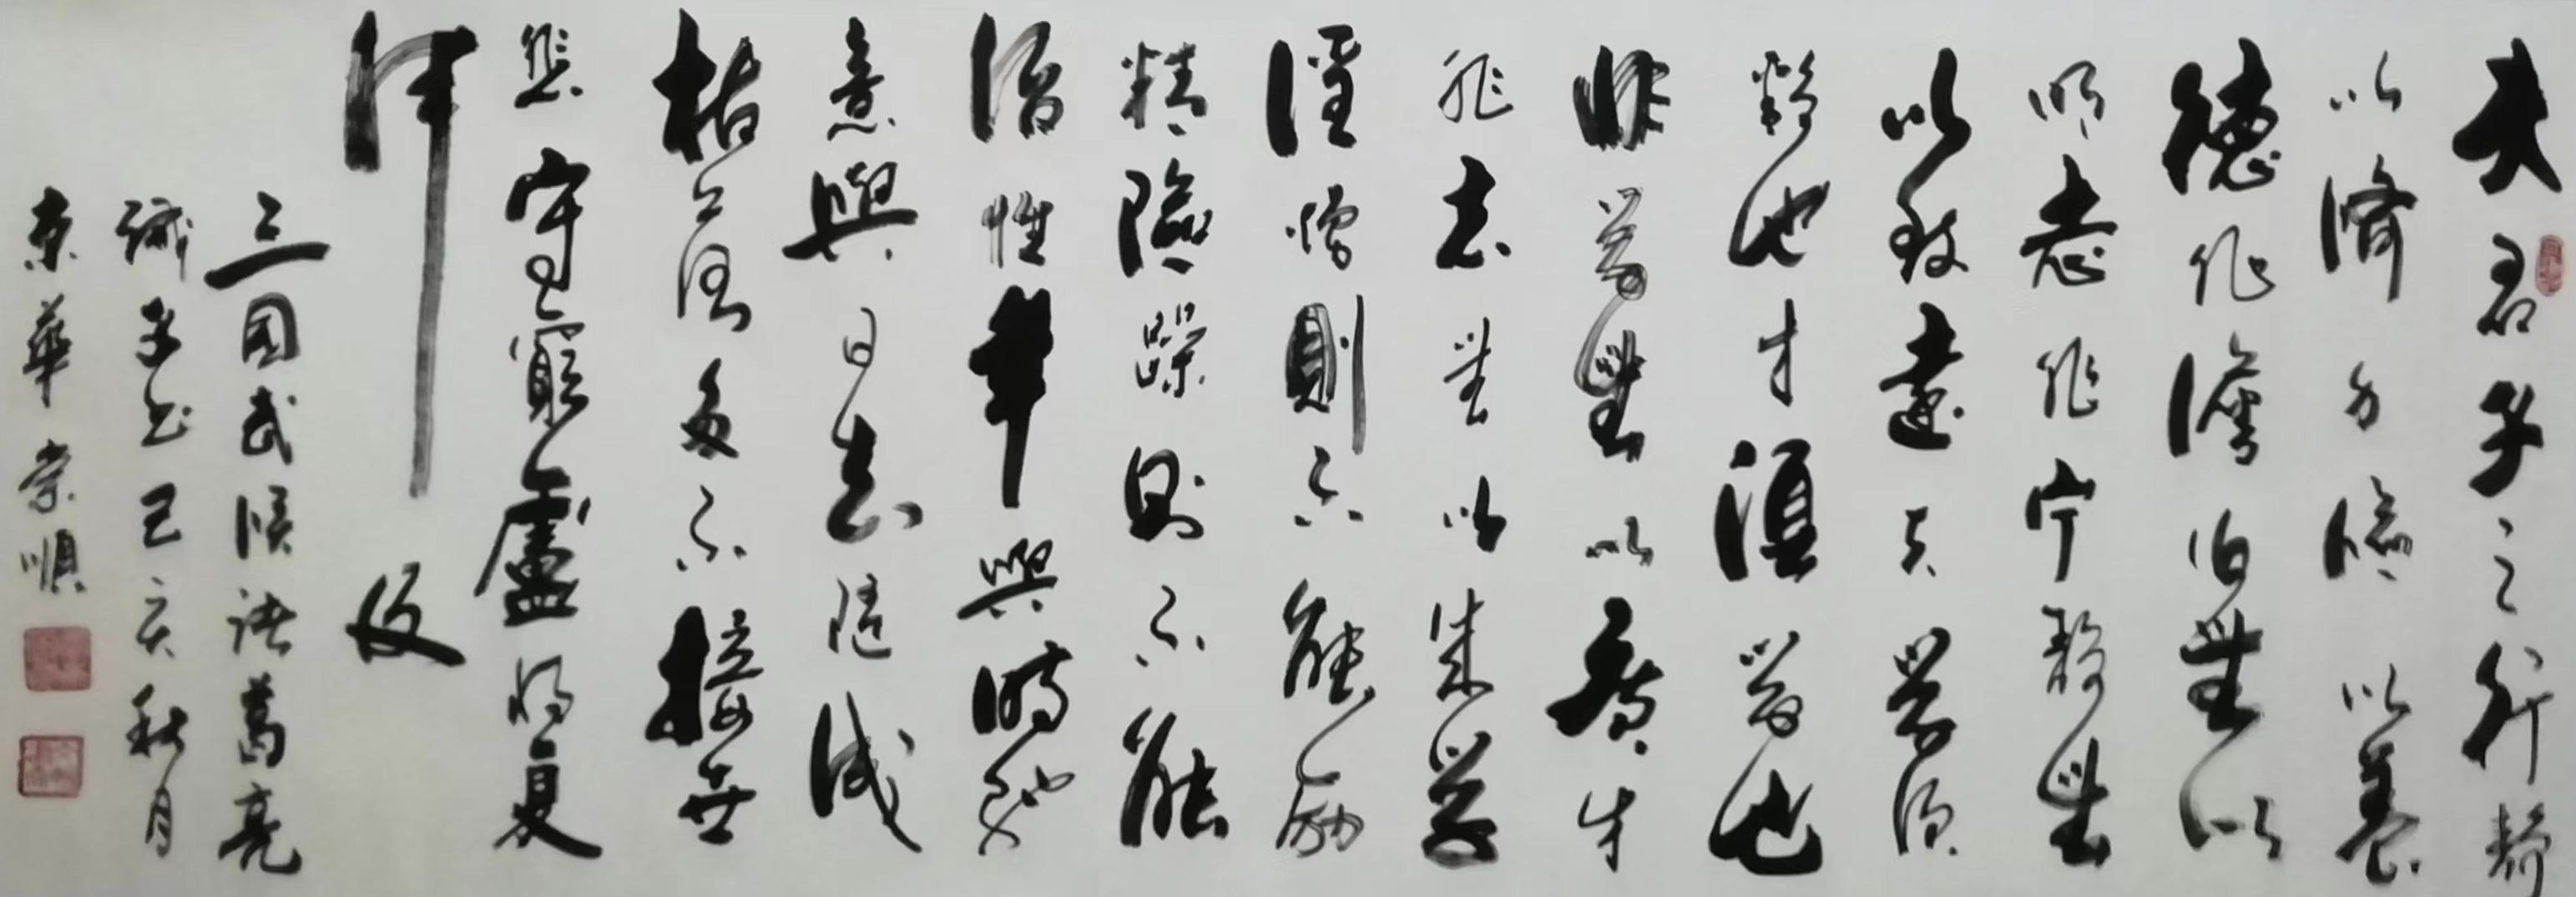 夫君子之行靜
以脩身儉以養
德非澹泊無以
明志非宁靜無
以致遠夫學須
靜也才須學也
非學無以廣才
非志無以成學
淫慢則不能勵
精險躁則不能
治性年與時馳
意與日去隨成
枯落多不接世
悲守窮廬將復
何及
三國武侯諸葛亮
誡子书己亥秋月
京華崇順